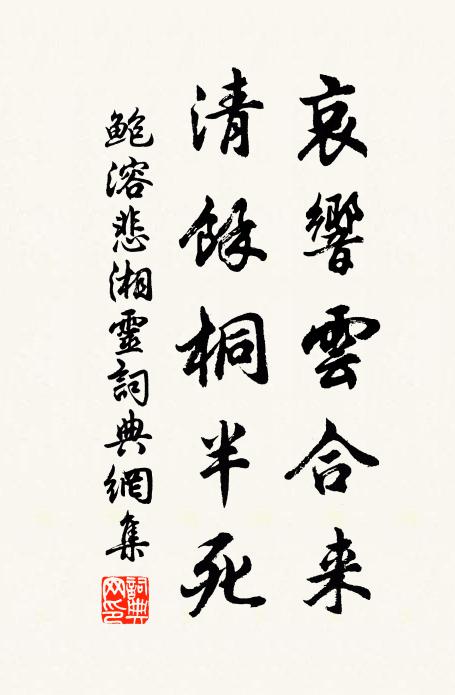 哀響雲合来
清餘桐半死
鲍溶悲湘靈詞典網集
詞典
网印